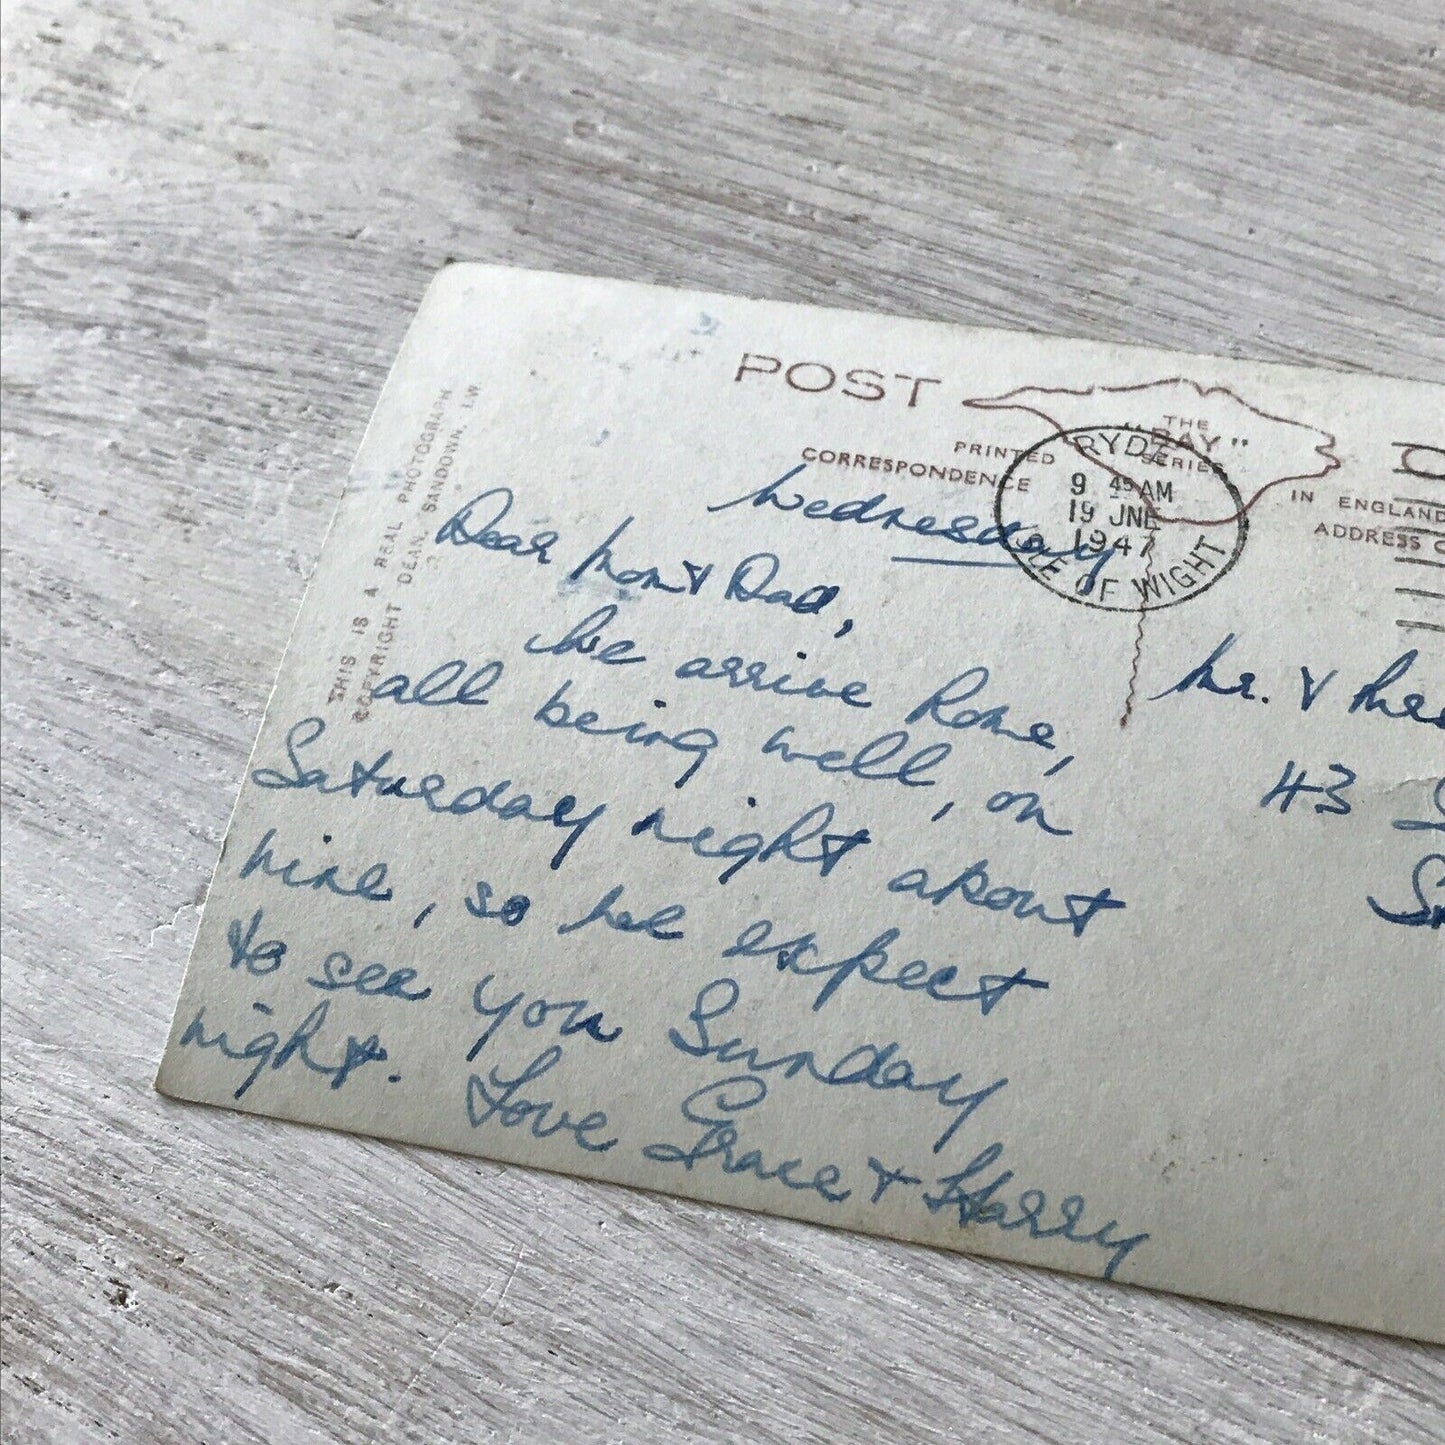 THIS IS A REAL PHOTOGRAPH
COPYRIGHT DEAN, SANDOWN, I.W.
POST
THE
"BAY"
SERIES
PRINTED
CORRESPONDENCE
IN ENGLAND
ADDRESS
RYDE
9 45 AM
19 JNE
1947
ISLE OF WIGHT
Wednesday
Dear Mom & Dad,
We arrive home,
all being well, on
Saturday night about
nine, so we expect
to see you Sunday
night.
Love Grace & Harry
Mr. &
43